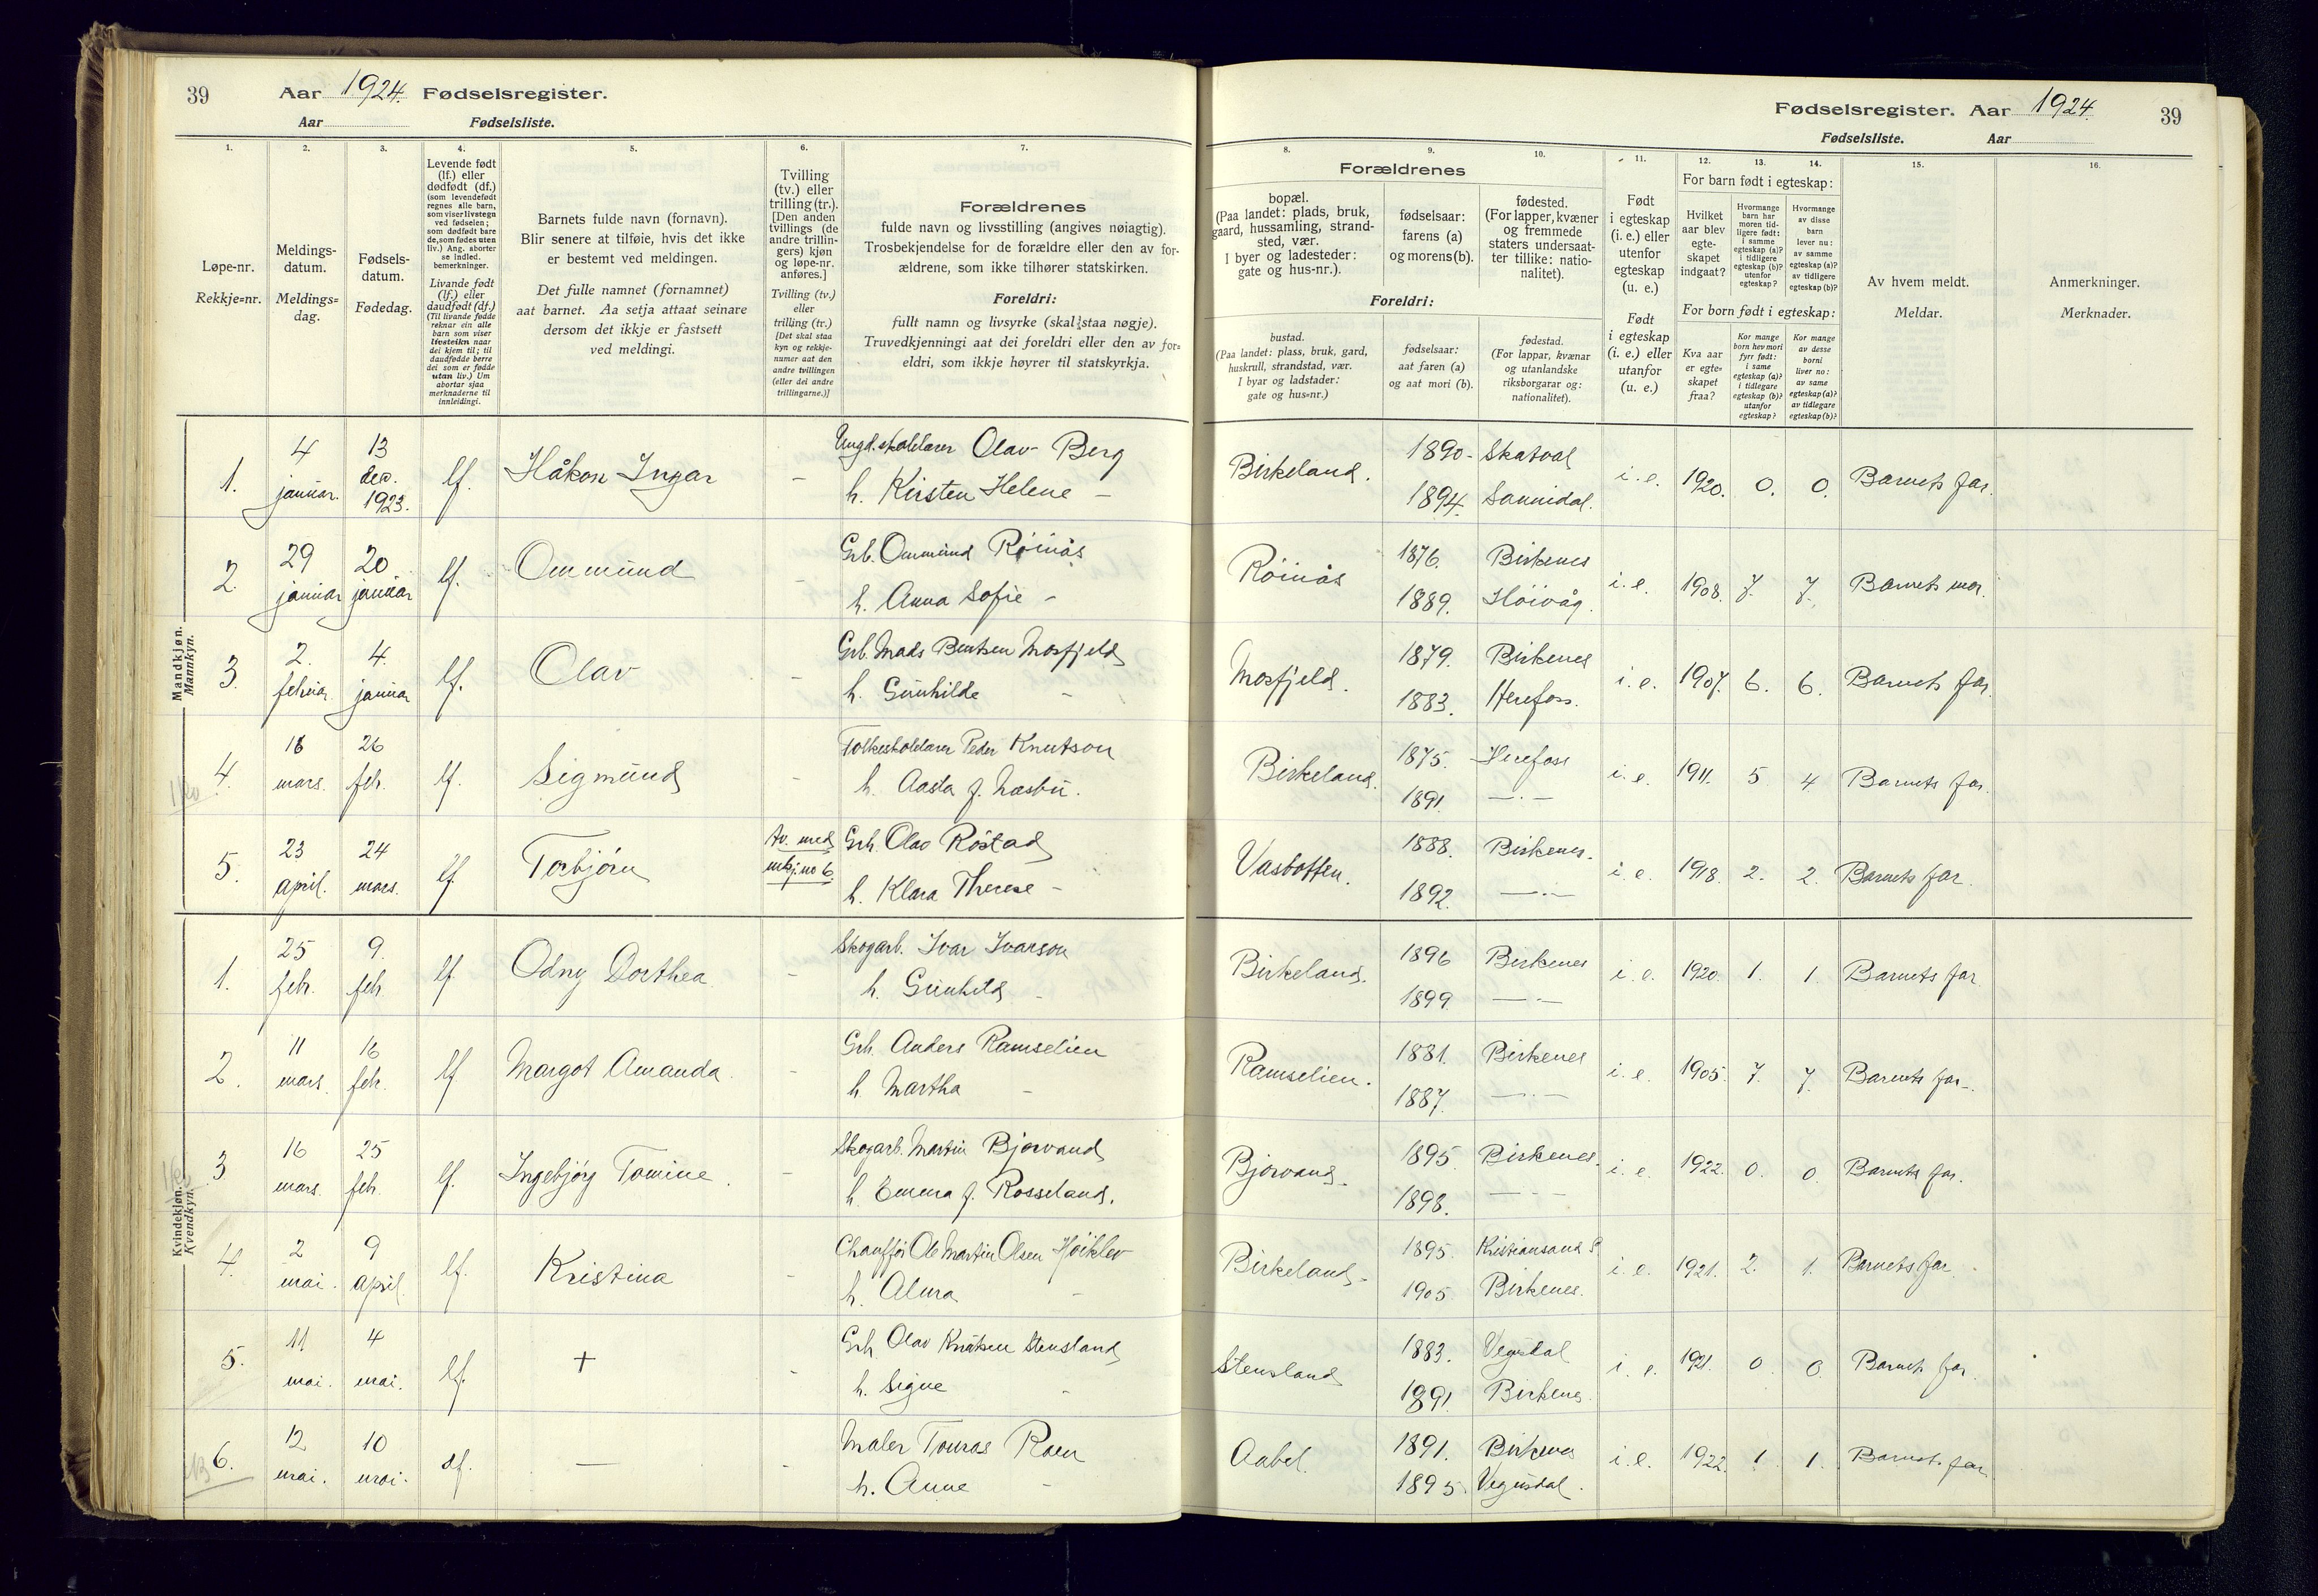 39 Aar 1924. Fødselsregister.
Aar Fødselsliste.
Fødselsregister. Aar 1924. 39
Fødselsliste. Aar
1. 2. 3. 4. 5. 6. 7.
Løpe-nr.
Rekkje=nr.
Meldings-
datum.
Meldings=
dag.
Fødsels-
datum.
Fødedag.
Levende født
(lf.) eller
dødfødt (df.)
(som levendefødt
regnes alle barn,
som viser livstegn
ved fødselen;
som dødfødt bare
de, som fødes uten
liv.) Ang. aborter
se indled.
bemerkninger.
Livande født
(lf.) eller
daudfødt (df.)
(Til livande fødde
reknar ein alle
born som viser
livsteikn naar
dei kjem til; til
daudfødde berre
dei som er fødde
utan liv.) Um
abortar sjaa
merknaderne til
innleidingi.
Barnets fulde navn (fornavn).
Blir senere at tilføie, hvis det ikke
er bestemt ved meldingen.
Det fulle namnet (fornamnet)
aat barnet. Aa setja attaat seinare
dersom det ikkje er fastsett
ved meldingi.
Tvilling
(tv.) eller
trilling (tr.).
[Den anden
tvillings (de
andre trillin-
gers) kjøn
og løpe-nr.
anføres.]
Tvilling (tv.)
eller
trilling (tr.)
[Det skal staa
kyn og rekkje-
numer aat den
andre tvillingen
(eller dei andre
trillingarne.)]
Forældrenes
fulde navn og livsstilling (angives nøiagtig).
Trosbekjendelse for de forældre eller den av for-
ældrene, som ikke tilhører statskirken.
Foreldri:
fullt namn og livsyrke (skal staa nøgje).
Truvedkjenningi aat dei foreldri eller den av for=
eldri, som ikkje høyrer til statskyrkja.
8. 9. 10. 11. 12. 13. 14. 15. 16.
Forældrenes
bopæl.
(Paa landet: plads, bruk,
gaard, hussamling, strand-
sted, vær.
I byer og ladesteder:
gate og hus-nr.).
fødselsaar:
farens (a)
og morens (b).
fødested.
(For lapper, kvæner
og fremmede
staters undersaat-
ter tillike: natio-
nalitet).
Foreldri:
bustad.
(Paa landet: plass, bruk, gard,
huskrull, strandstad, vær.
I byar og ladstader:
gate og hus=nr.)
fødselsaar:
aat faren (a)
og aat mori (b).
fødestad.
(For lappar, kvænar
og utanlandske
riksborgarar og:
nationalitet).
Født
i egteskap
(i. e.) eller
utenfor
egteskap
(u. e.)
Født
i egteskap
(i. e.) eller
utanfor
(u. e.)
For barn født i egteskap:
Hvilket
aar blev
egte-
skapet
indgaat?
Hvormange
barn har
moren tid-
ligere født:
i samme
egteskap (a)?
i tidligere
egteskap (b)?
utenfor
egteskap?
Hvormange
av disse
barn
lever nu:
av samme
egteskap (a)?
av tidligere
egteskap (b)?
For born født i egteskap:
Kva aar
er egte=
skapet
fraa?
Kor mange
born hev mori
fyrr født:
i same
egteskap (a)?
i tidlegare
egteskap (b)?
utanfor
egteskap?
Kor mange
av desse
borni
liver no:
av same
egteskap (a)?
av tidlegare
egteskap (b)?
Av hvem meldt.
Meldar.
Anmerkninger.
Merknader.
Mandkjøn.
Mannkyn.
1. 4 januar. 13 dec. 1923. lf. Håkon Ingar - Ungd.skolelærer Olav Berg
h. Kirsten Helene -
Birkeland. 1890- Skatval i. e. 1920. 0. 0. Barnets far.
1894. Sannidal.
2. 29 januar 20 januar lf. Ommund - Grb. Ommund Röinås
h. Anna Sofie -
Röinås 1876. Birkenes i. e. 1908. 7. 7. Barnets mor.
1889. Höivåg.
3. 2. februar. 4. januar lf. Olav - Grb. Mads Bentsen Mosfjeld
h. Gunhilde -
Mosfjeld. 1879. Birkenes i. e. 1907. 6. 6. Barnets far.
1883. Herefoss.
4. 18 mars. 26 febr. lf. Sigmund - Folkeskolelærer Peder Knutson
h. Aasta f. Næsbu.
Birkeland. 1875. Herefoss i. e. 1911. 5 4 Barnets far.
1891. —·—
5. 23 april. 24 mars. lf. Torbjörn tv. med mkj. no 6. Grb. Olav Röstad
h. Klara Therese -
Vasbotten. 1888. Birkenes. i. e. 1918. 2. 2. Barnets far.
1892. —·—
Kvindekjøn.
Kvendkyn.
1. 25 febr. 9. febr. lf. Odny Dorthea - Skogarb. Ivar Ivarson
h. Gunhild -
Birkeland. 1896 Birkenes i. e. 1920. 1. 1. Barnets far.
1899. —·—
2. 11 mars. 16 febr. lf Margot Amanda. - Grb. Anders Ramselien
h Martha -
Ramselien. 1881. Birkenes i. e. 1905. 7. 7. Barnets far.
1887. —·—
3 16 mars. 25 febr. lf. Ingebjörg Tomine. - Skogarb. Martin Bjorvand
h. Emma f. Rosseland.
Bjorvand. 1895. Birkenes. i. e. 1922. 0. 0. Barnets far.
1898. —·—
4. 2 mai. 9 april. lf. Kristina - Chaufför Ole Martin Olsen Höiklev
h. Alma -
Birkeland. 1895. Kristiansand S. i. e. 1921. 2. 1. Barnets far.
1905. Birkenes.
5. 11 mai. 4 mai. lf. + - Grb. Olav Knutsen Stensland
h. Signe -
Stensland 1883. Vegusdal i. e. 1921. 0 0. Barnets far.
1891. Birkenes.
6. 12 mai. 10 mai. df. — - Maler Tomas Roen
h. Anne -
Aabel. 1891. Birkenes i. e. 1922. 1. 1. Barnets far.
1895. Vegusdal.